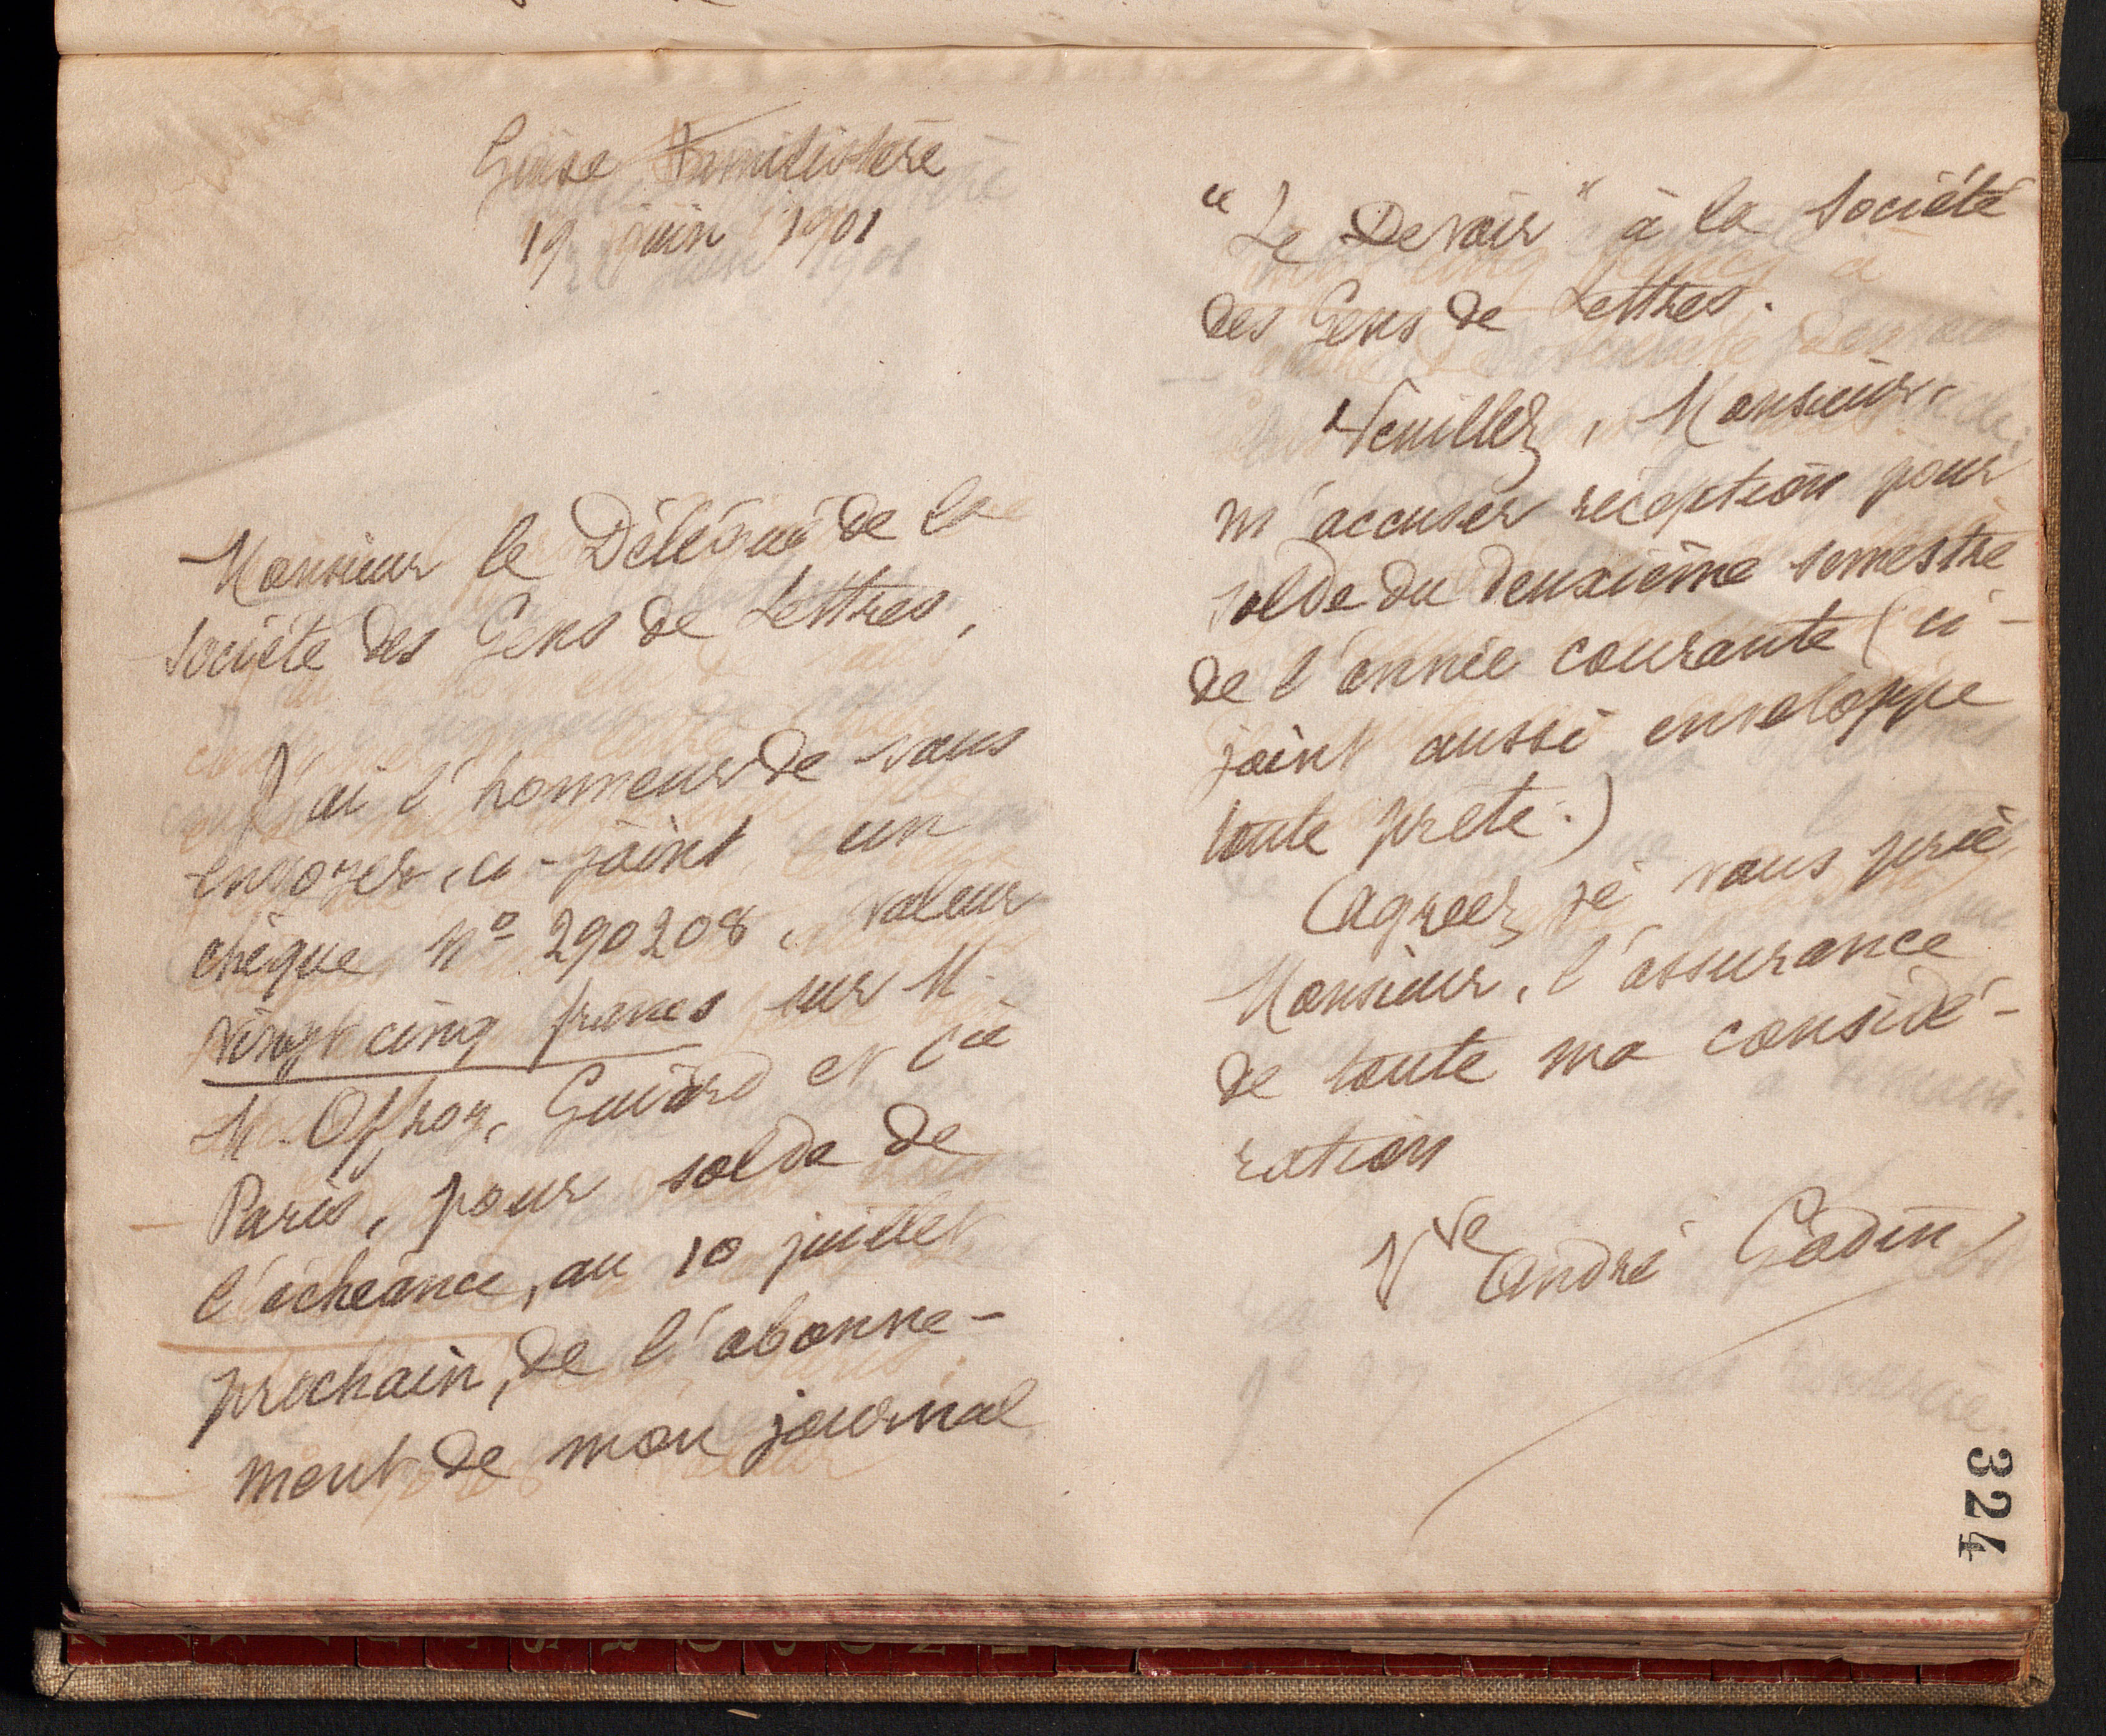 Guise Familistère
19 juin 1901
Monsieur le Délégué de la
Société des Gens de Lettres,
J'ai l'honneur de vous
envoyer, ci-joint un
chèque Nº 290208, valeur
vingt cinq francs sur M.
M. Offroy, Guiard et Cie
Paris, pour solde de
l'échéance, au 10 juillet
prochain, de l'abonne-
ment de mon journal
"Le Devoir" à la Société
des Gens de Lettres.
Veuillez, Monsieur,
m'accuser réception pour
solde du deuxième semestre
de l'année courante (ci-
joint aussi enveloppe
toute prête.)
Agréez, je vous prie
Monsieur, l'assurance
de toute ma considé-
ration
Vve André Godin
324